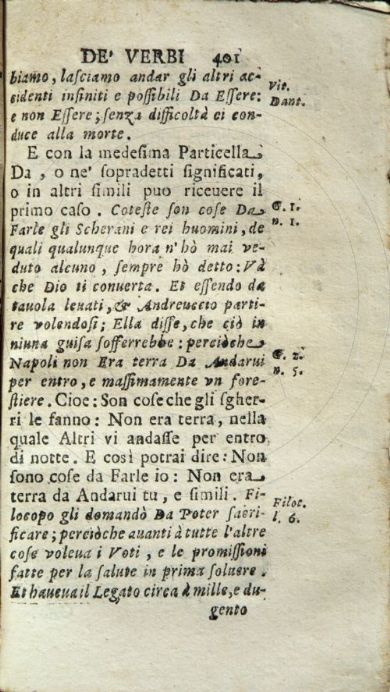 DE' VERBI 401
biamo, lasciamo andar gli altri ac-
cidenti infiniti e possibili Da Essere:
e non Essere; senza difficoltà ci con-
duce alla morte.
Vit.
Dant.
E con la medesima Particella
Da, o ne' sopradetti significati,
o in altri simili puo riceuere il
primo caso. Coteste son cose Da
Farle gli Scherani e rei huomini, de
quali qualunque hora n'hò mai ve-
duto alcuno, sempre hò detto: Và
che Dio ti conuerta. Et essendo da
tauola leuati, & Andreuccio parti-
re volendosi; Ella disse, che ciò in
niuna guisa sofferrebbe: perciòche
Napoli non Era terra Da Andarui
per entro, e massimamente vn fore-
stiere. Cioe: Son cose che gli sgher-
ri le fanno: Non era terra, nella
quale Altri vi andasse per entro
di notte. E così potrai dire: Non
sono cose da Farle io: Non era
terra da Andarui tu, e simili. Fi-
locopo gli domandò Da Poter sacri-
ficare; perciòche auanti à tutte l'altre
cose voleua i Voti, e le promissioni
fatte per la salute in prima soluere.
Et haueua il Legato circa à mille, e du-
gento
G. 1.
n. 1.
G. 2.
n. 5.
Filoc.
l. 6.